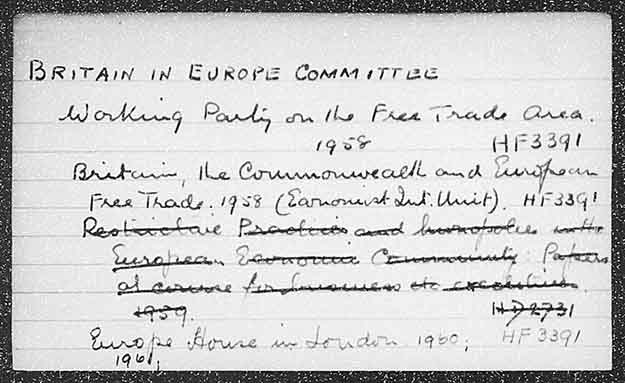 BRITAIN IN EUROPE COMMITTEE
Working Party on the Free Trade Area.
1958 HF3391
Britain, the Commonwealth and European
Free Trade. 1958 (Economist Int. Unit). HF3391
Restrictive Practices and monopolies in the
European Economic Community: Papers
at course for business etc executives.
1959. HD2731
Europe House in London 1960; HF3391
1961;